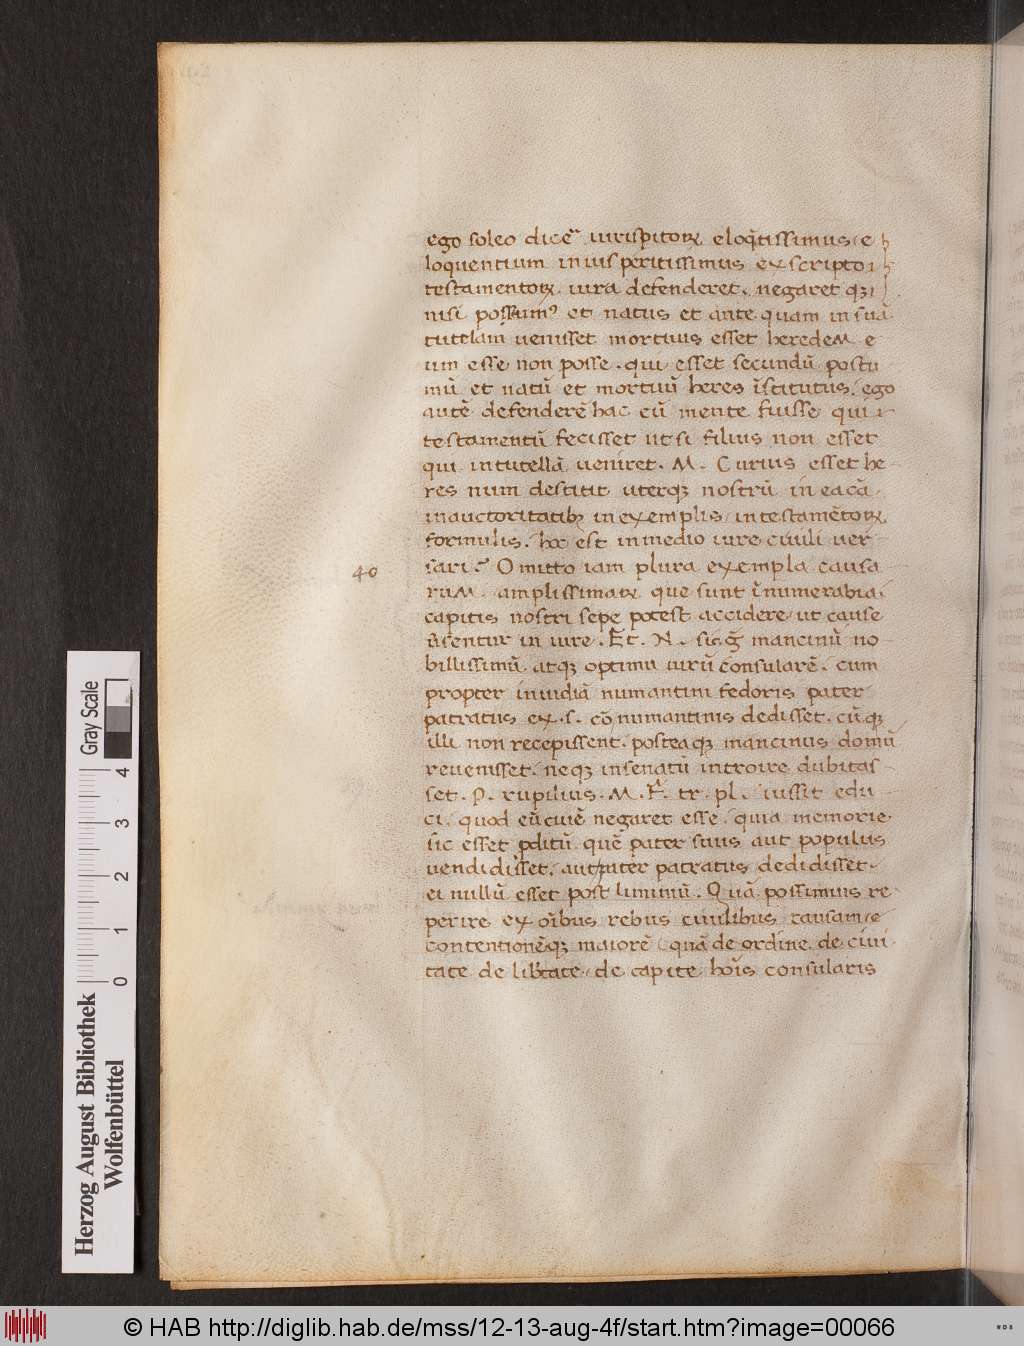 ego soleo dicē iurispitoꝝ eloq̄tissimus / e
loquentium in ius peritissimus ex scripto
testamentoꝝ iura defenderet. negaret qꝫ
nisi postum⁹ et natus et ante quam in suā
tutelam uenisset mortuus esset heredeM e
um esse non posse. qui esset secundū postu
mū et natū et mortuū heres īstitutus. ego
autē defenderē hac eū mente fuisse qui
testamentū fecisset ut si filius non esset
qui in tutellā ueniret. M. Curius esset he
res num destitit uterqꝫ nostrū in ea cā
in auctoritatibꝫ in exemplis / in testamētoꝝ
formulis. hoc est in medio iure ciuili uer
40
sari? Omitto iam plura exempla causa
ruM. amplissimaꝝ que sunt īnumerabia.
capitis nostri sepe potest accidere / ut cause
ūsentur in iure. Et. N. sic .g̊. mancinū no
billissimū atqꝫ optimu uirū consularē. cum
propter inuidiā numantini fedoris pater
patratus ex. s. cō numantinis dedisset. cūqꝫ
illi non recepissent. posteaqꝫ mancinus domū
reuenisset. neqꝫ in senatū introire dubitas
set. P. rupilius. M. F. tr. pl. iussit edu
ci. quod eū ciuē negaret esse. quia memorie
sic esset pditū quē pater suus aut populus
uendidisset. aut pater patratus dedidisset
ei nullū esset post liminiū. Quā possimus re
perire ex oībus rebus ciuilibus causam / e
contentionēqꝫ maiorē quā de ordine de ciui
tate de lib̄tate / de capite hoīs consularis
Herzog August Bibliothek
Wolfenbüttel
0 1 2 3 4
Gray Scale
© HAB http://diglib.hab.de/mss/12-13-aug-4f/start.htm?image=00066